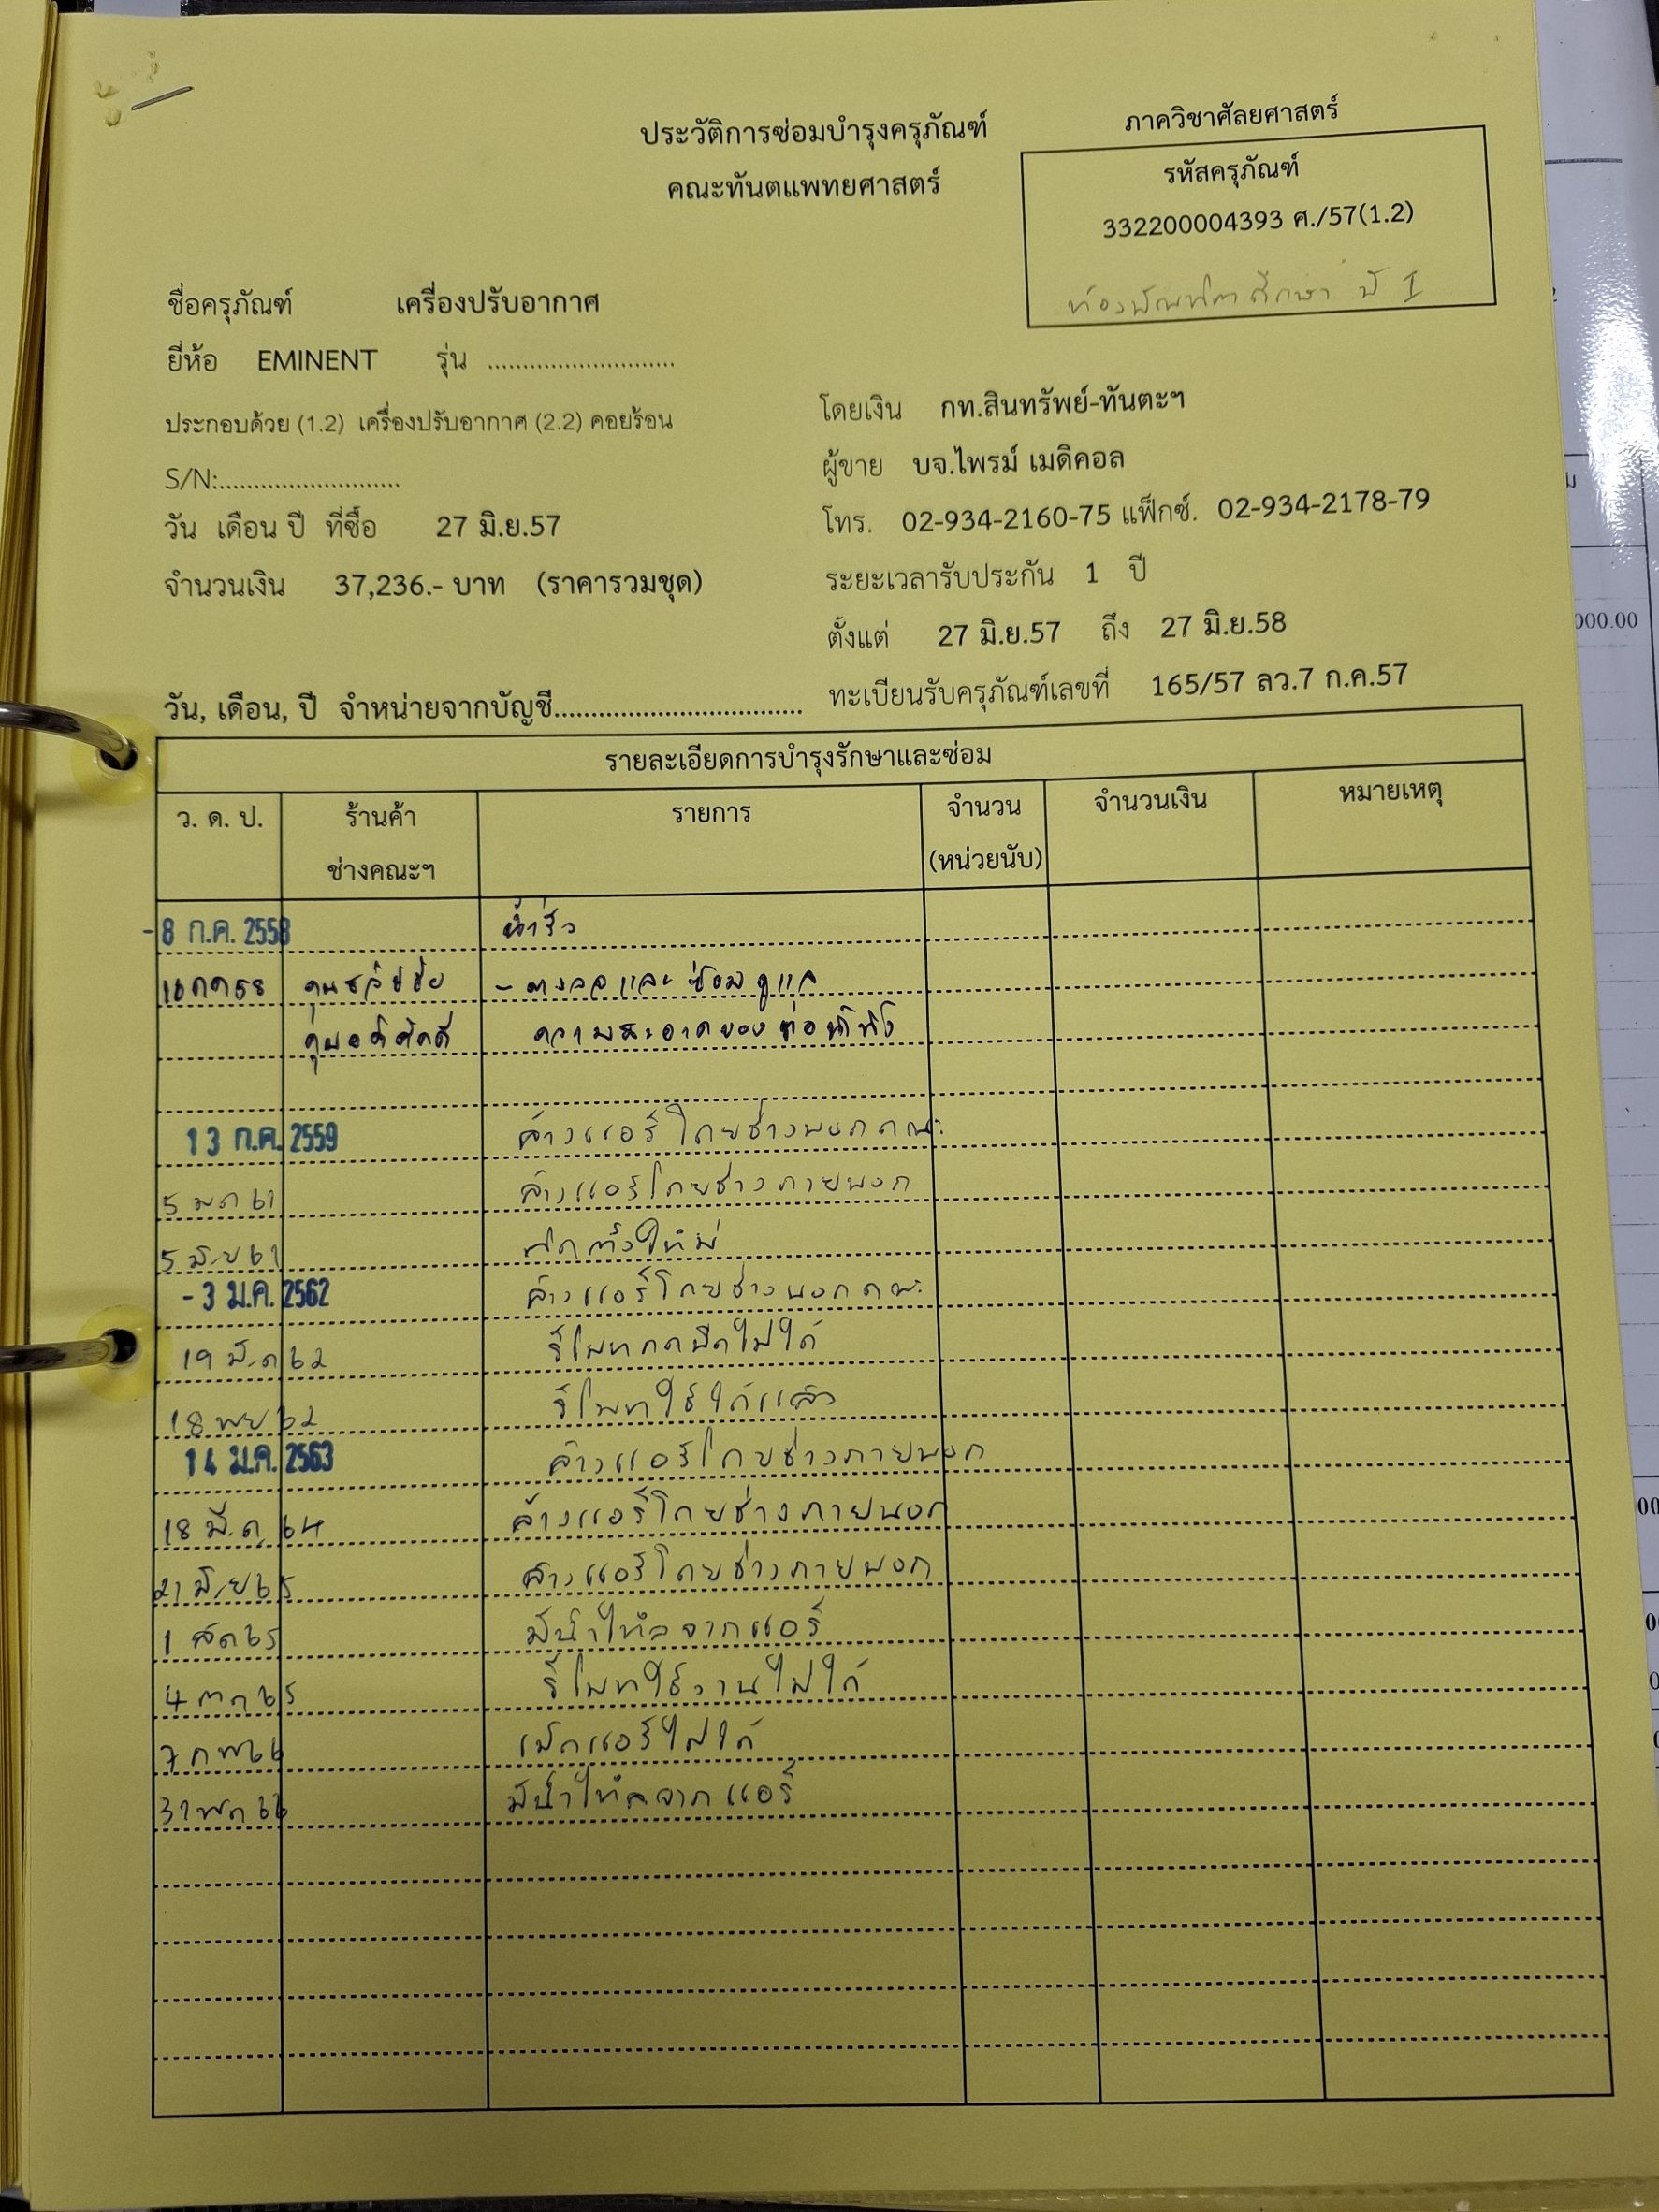 ประวัติการซ่อมบำรุงครุภัณฑ์
คณะทันตแพทยศาสตร์
ภาควิชาศัลยศาสตร์
รหัสครุภัณฑ์
332200004393 ศ./57(1.2)
ห้องบัณฑิตศึกษา ปี 1
ชื่อครุภัณฑ์ เครื่องปรับอากาศ
ยี่ห้อ EMINENT รุ่น ...........................
ประกอบด้วย (1.2) เครื่องปรับอากาศ (2.2) คอยร้อน
S/N:..........................
วัน เดือน ปี ที่ซื้อ 27 มิ.ย.57
จำนวนเงิน 37,236.- บาท (ราคารวมชุด)
โดยเงิน กท.สินทรัพย์-ทันตะฯ
ผู้ขาย บจ.ไพรม์ เมดิคอล
โทร. 02-934-2160-75 แฟ็กซ์. 02-934-2178-79
ระยะเวลารับประกัน 1 ปี
ตั้งแต่ 27 มิ.ย.57 ถึง 27 มิ.ย.58
ทะเบียนรับครุภัณฑ์เลขที่ 165/57 ลว.7 ก.ค.57
วัน, เดือน, ปี จำหน่ายจากบัญชี.................................
รายละเอียดการบำรุงรักษาและซ่อม
ว. ด. ป. ร้านค้า รายการ จำนวน จำนวนเงิน หมายเหตุ
ช่างคณะฯ (หน่วยนับ)
- 8 ก.ค. 2558 น้ำรั่ว
16 กค 58 - ตรวจและซ่อมดูแล
ความสะอาดของท่อน้ำทิ้ง
13 ก.ค. 2559 ล้างแอร์โดยช่างนอกคณะ
5 มค 61 ล้างแอร์โดยช่างภายนอก
5 มิ.ย 61 ติดตั้งใหม่
- 3 ม.ค. 2562 ล้างแอร์โดยช่างนอกคณะ
19 มี.ค 62 รีโมทกดปิดไม่ได้
18 พย 62 รีโมทใช้ได้แล้ว
14 ม.ค. 2563 ล้างแอร์โดยช่างภายนอก
18 มี.ค 64 ล้างแอร์โดยช่างภายนอก
21 มิ.ย 65 ล้างแอร์โดยช่างภายนอก
1 สค 65 มีน้ำไหลจากแอร์
4 ตค 65 รีโมทใช้งานไม่ได้
7 กพ 66 เปิดแอร์ไม่ได้
31 พค 66 มีน้ำไหลจากแอร์
000.00